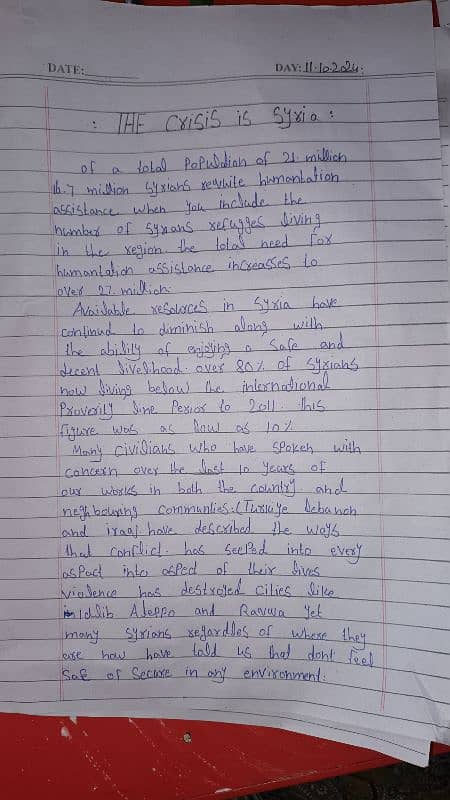 DATE:
DAY: 11.10.2024.
: THE Crisis is Syria :
of a total Populdion of 21. million
16.7 million Syrians rewhite humantation
assistance when you include the
number of Syrians refugges living
in the region the total need For
humantation assistance increasses to
over 27 million.
Available resources in Syria have
continud to diminish along with
the ability of enjoying a Safe and
decent livelihood. over 80% of Syrians
now living below the international
Proverily line Perior to 2011. this
figure was as low as 10%
Many Civilians who have spoken with
concern over the last 10 years of
our works in both the country and
neghbouring communties. (Turkiye Lebanon
and iraq) have described the ways
that conflict. has seeped into every
aspact into aspect of their lives
violence has destroyed cities like
Idlib Aleppo and Raqqa Yet
many Syrians regardles of where they
are now have told us that dont feel
Safe of Secure in any environment.